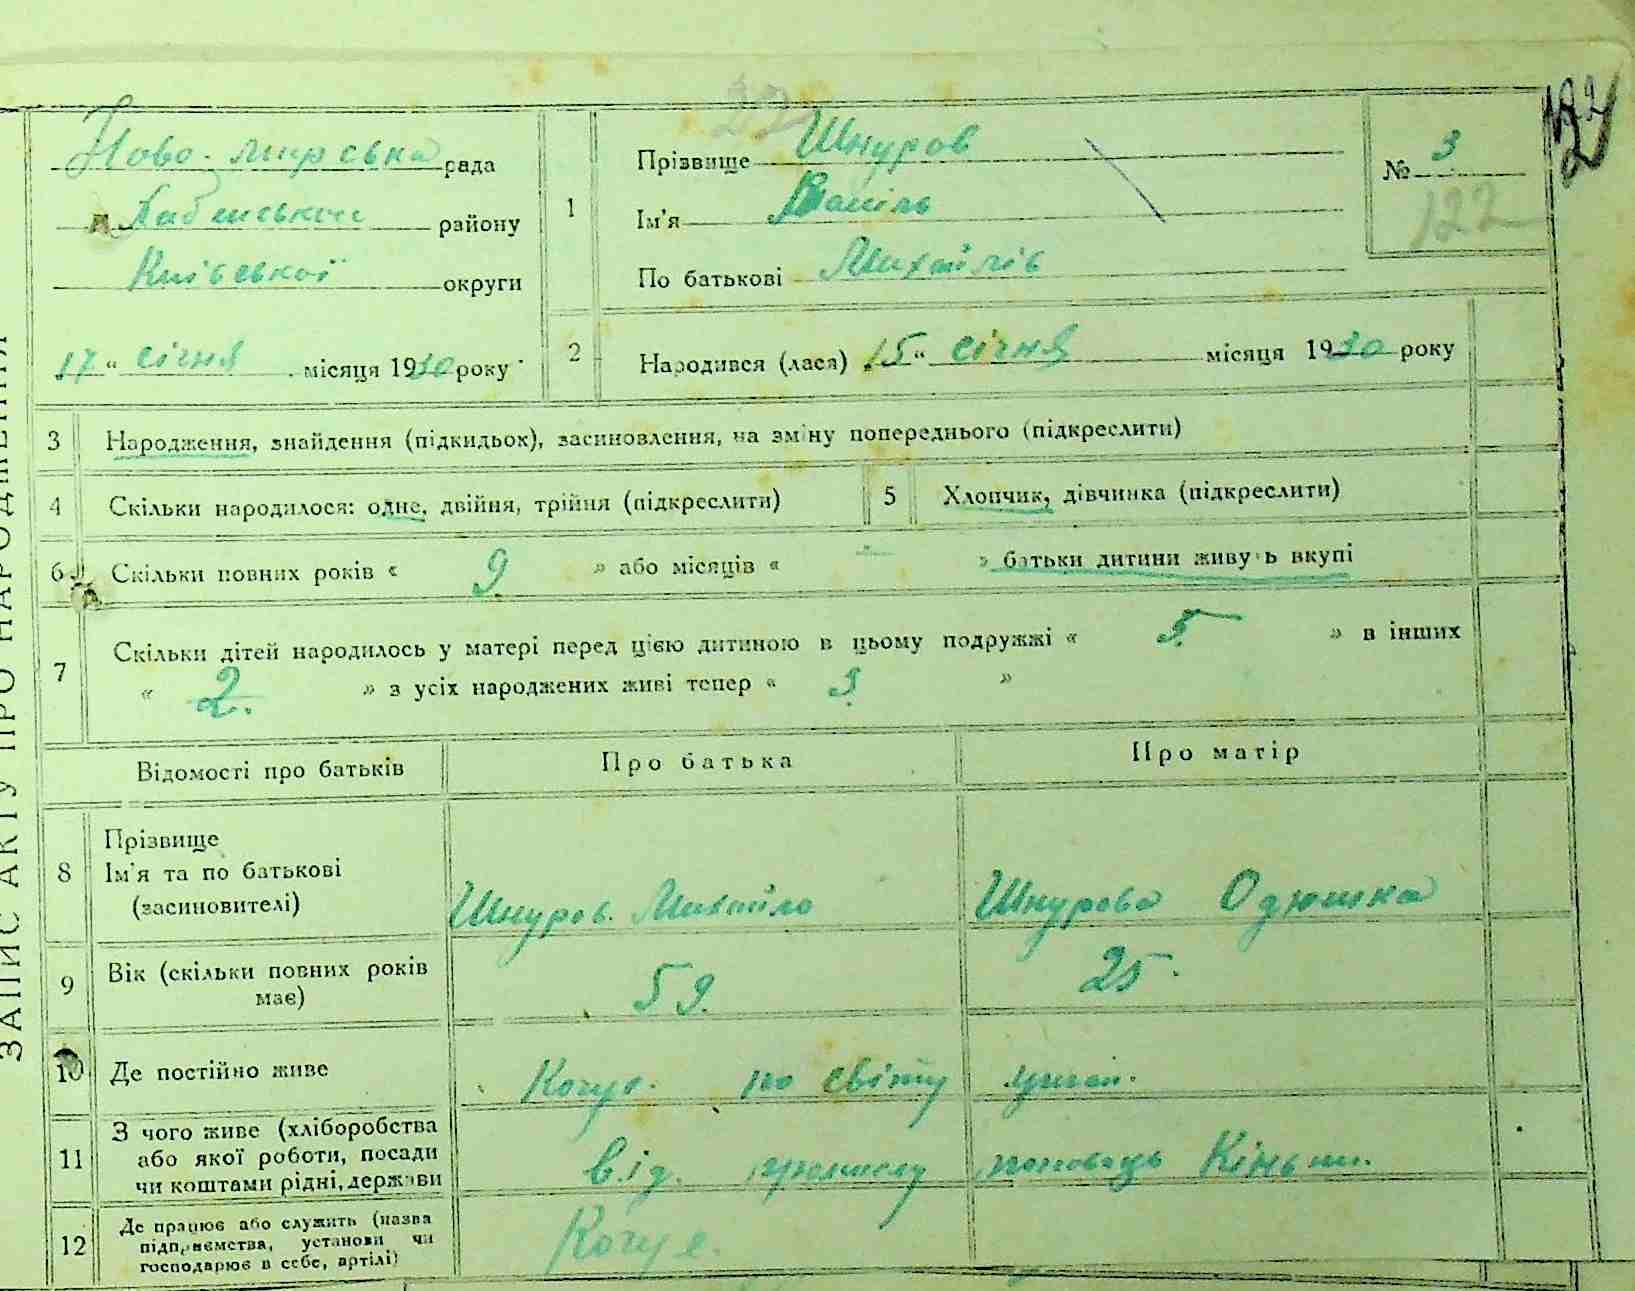 ЗАПИС АКТУ ПРО НАРОДЖЕННЯ
Ново-мирська рада
району
Київської округи
17 " січня місяця 1930 року
122
1 Прізвище Шнуров
Ім'я Васіль
По батькові Михайлів
№ 3
122
2 Народився (лася) 15 " січня місяця 1930 року
3 Народження, знайдення (підкидьок), засиновлення, на зміну попереднього (підкреслити)
4 Скільки народилося: одне, двійня, трійня (підкреслити)
5 Хлопчик, дівчинка (підкреслити)
6 Скільки повних років « 9 » або місяців « — » батьки дитини живуть вкупі
7 Скільки дітей народилось у матері перед цією дитиною в цьому подружжі « 5 » в інших
« 2. » з усіх народжених живі тепер « 3 »
Відомості про батьків
Про батька
Про матір
8 Прізвище
Ім'я та по батькові
(засиновителі)
Шнуров. Михайло
Шнурова Одюшка
9 Вік (скільки повних років
має)
59.
25.
10 Де постійно живе
Кочує. по світу циган.
11 З чого живе (хліборобства
або якої роботи, посади
чи коштами рідні, держави
від. промислу Кіньми.
12 Де працює або служить (назва
підприємства, установи чи
господарює в себе, артілі)
Кочує.